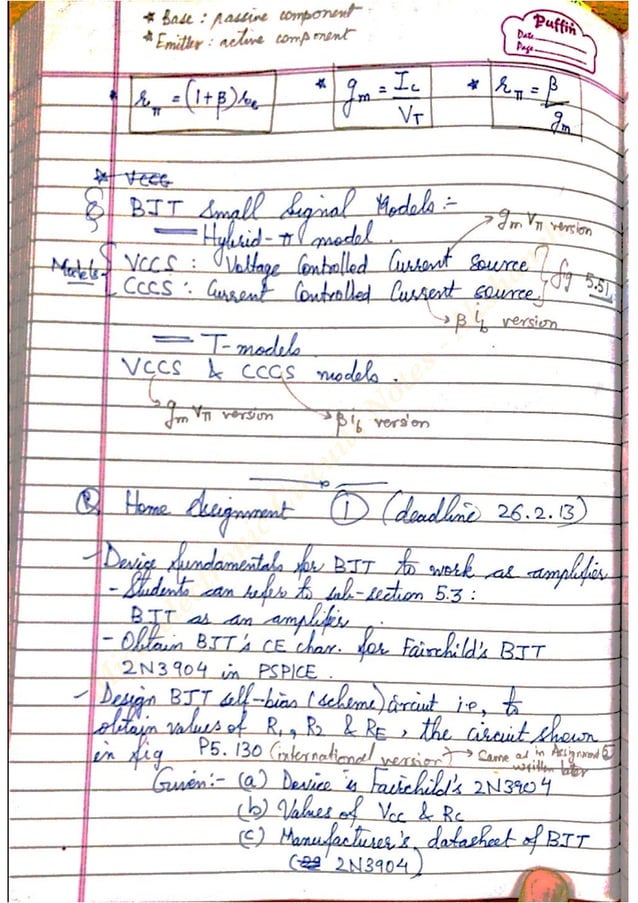 * Base : passive component
* Emitter : active component
Puffin
Date
Page
* r_π = (1+β) r_e
* g_m = I_C / V_T
* r_π = β / g_m
* VCCC
BJT Small Signal Models :-
Hybrid-π model.
g_m V_π version
Models- VCCS : Voltage Controlled Current Source
CCCS : Current Controlled Current source
fig 5.51
β i_b version
T-models
VCCS & CCCS models.
g_m V_π version
β i_b version
Home Assignment ① (deadline 26.2.13)
- Device fundamentals for BJT to work as amplifier
- Students can refer to sub-section 5.3 :
BJT as an amplifier.
- Obtain BJT's CE char. for Fairchild's BJT
2N3904 in PSPICE.
- Design BJT self-bias (scheme) circuit i.e, to
obtain values of R1, R2 & RE, the circuit shown
in fig P5.130 (international version) → Same as in Assignment
written later
Given:- (a) Device is Fairchild's 2N3904
(b) Values of Vcc & Rc
(c) Manufacturer's datasheet of BJT
(2N3904)